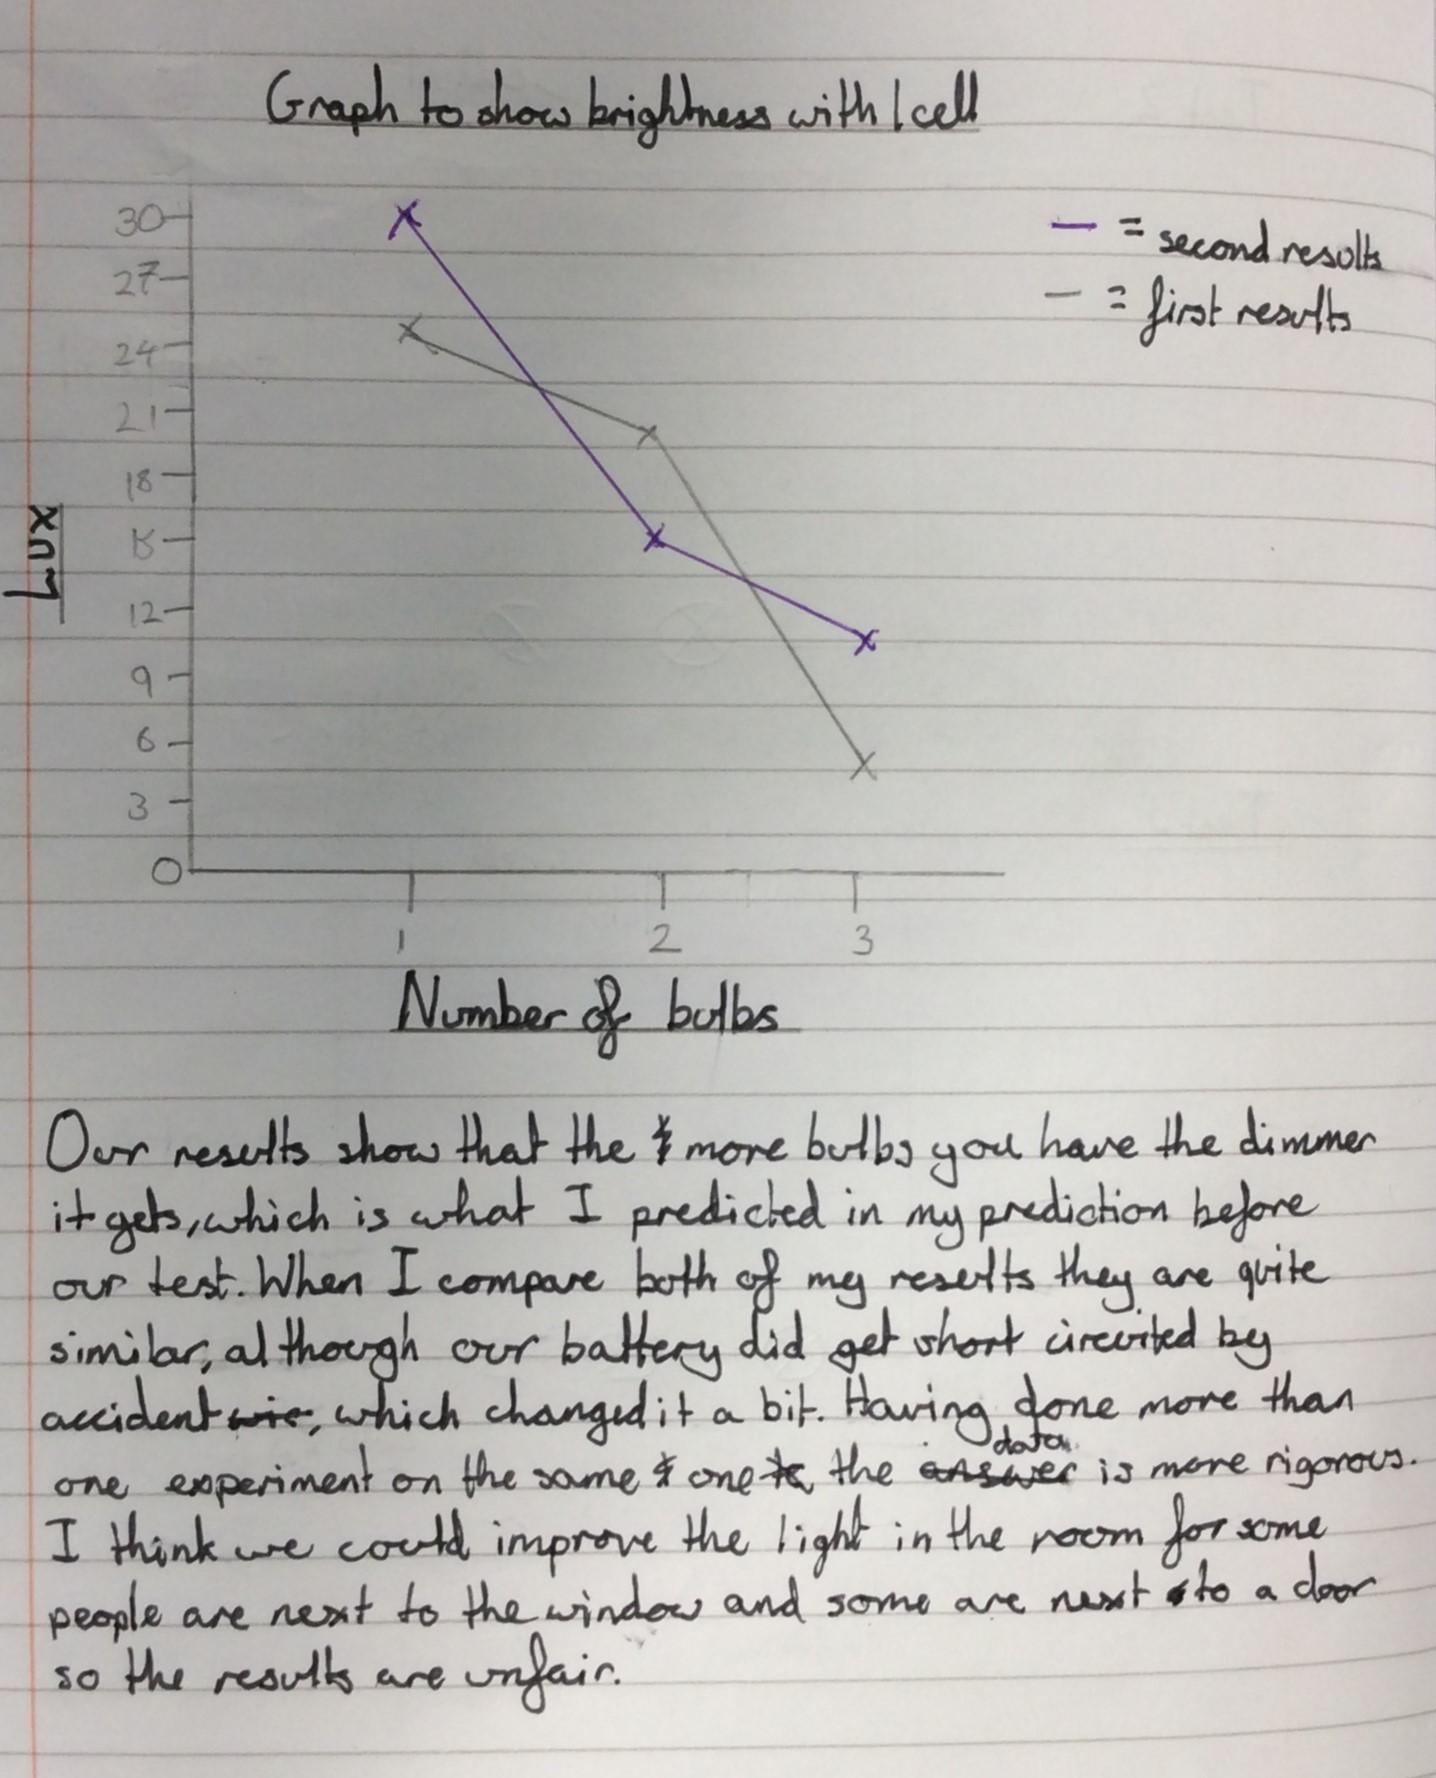 Graph to show brightness with 1 cell
30
27
24
21
18
15
12
9
6
3
0
Lux
= second results
= first results
1 2 3
Number of bulbs
Our results show that the more bulbs you have the dimmer
it gets, which is what I predicted in my prediction before
our test. When I compare both of my results they are quite
similar, although our battery did get short circuited by
accident, which changed it a bit. Having done more than
one experiment on the same one the data is more rigorous.
I think we could improve the light in the room for some
people are next to the window and some are next to a door
so the results are unfair.